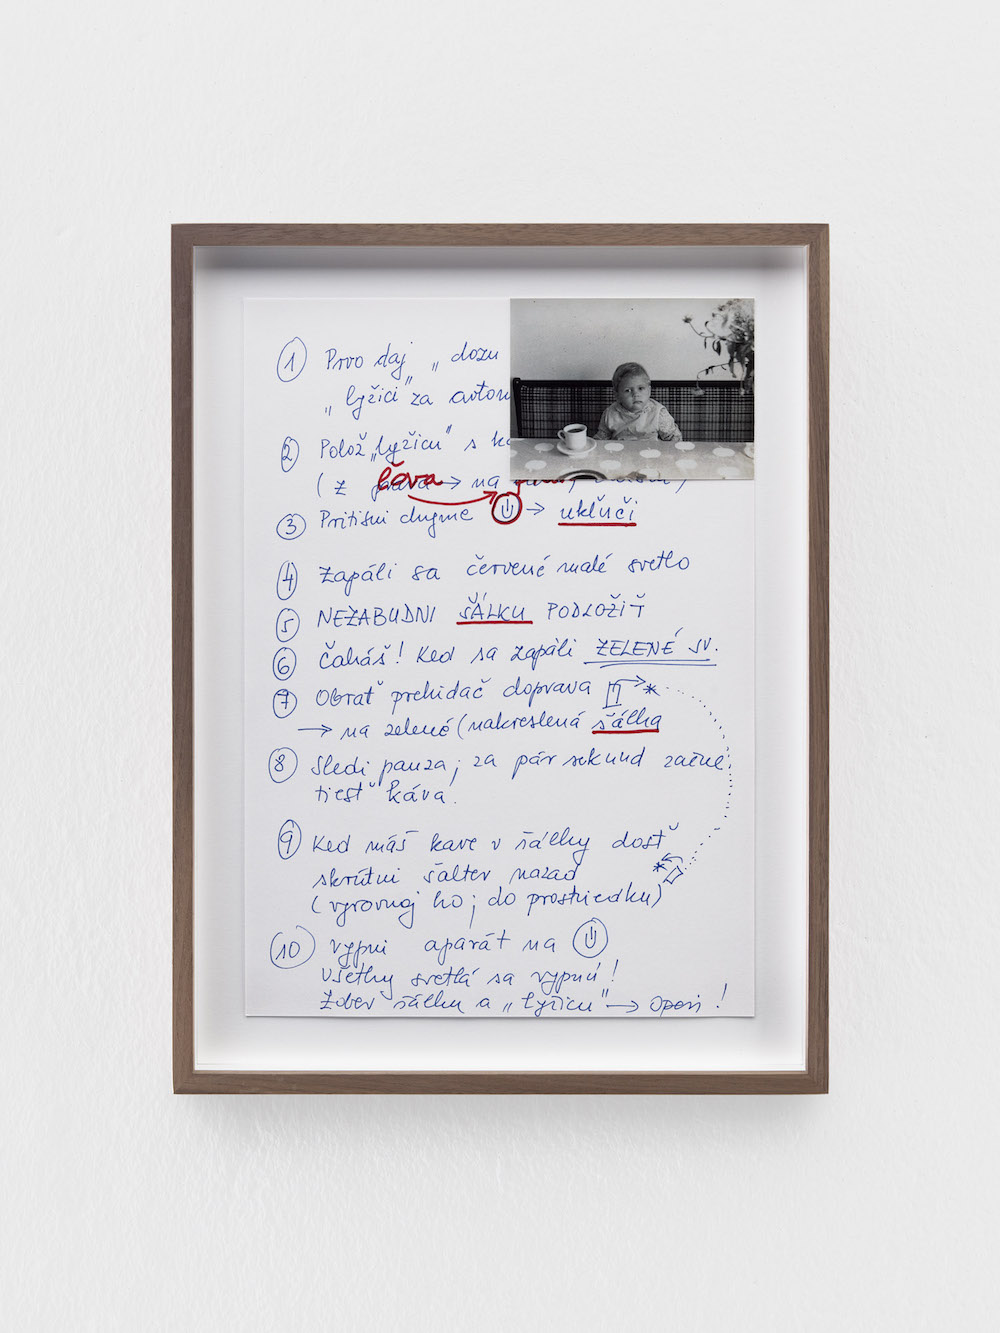 1 Prvo daj „dozu
„lyžici” za avtom
2 Polož „lyžicu” s
(z ľava → na
3 Pritisni dugme → uključi
4 Zapáli sa červené malé svetlo
5 NEZABUDNI ŠÁLKU PODLOŽIŤ
6 Čakáš! Ked sa zapáli ZELENÉ SV.
7 Obrať prekidač doprava
→ na zelené (nakreslená šálka
8 Sledi pauza; za pár sekund začne
tiesť káva.
9 Ked máš kave v šálky dosť
skrútni šalter nazad
(vyrovnaj ho; do prostriedku)
10 Vypni aparát na
všetky svetlá sa vypnú!
Zober šálku a „lyžicu” → operi!